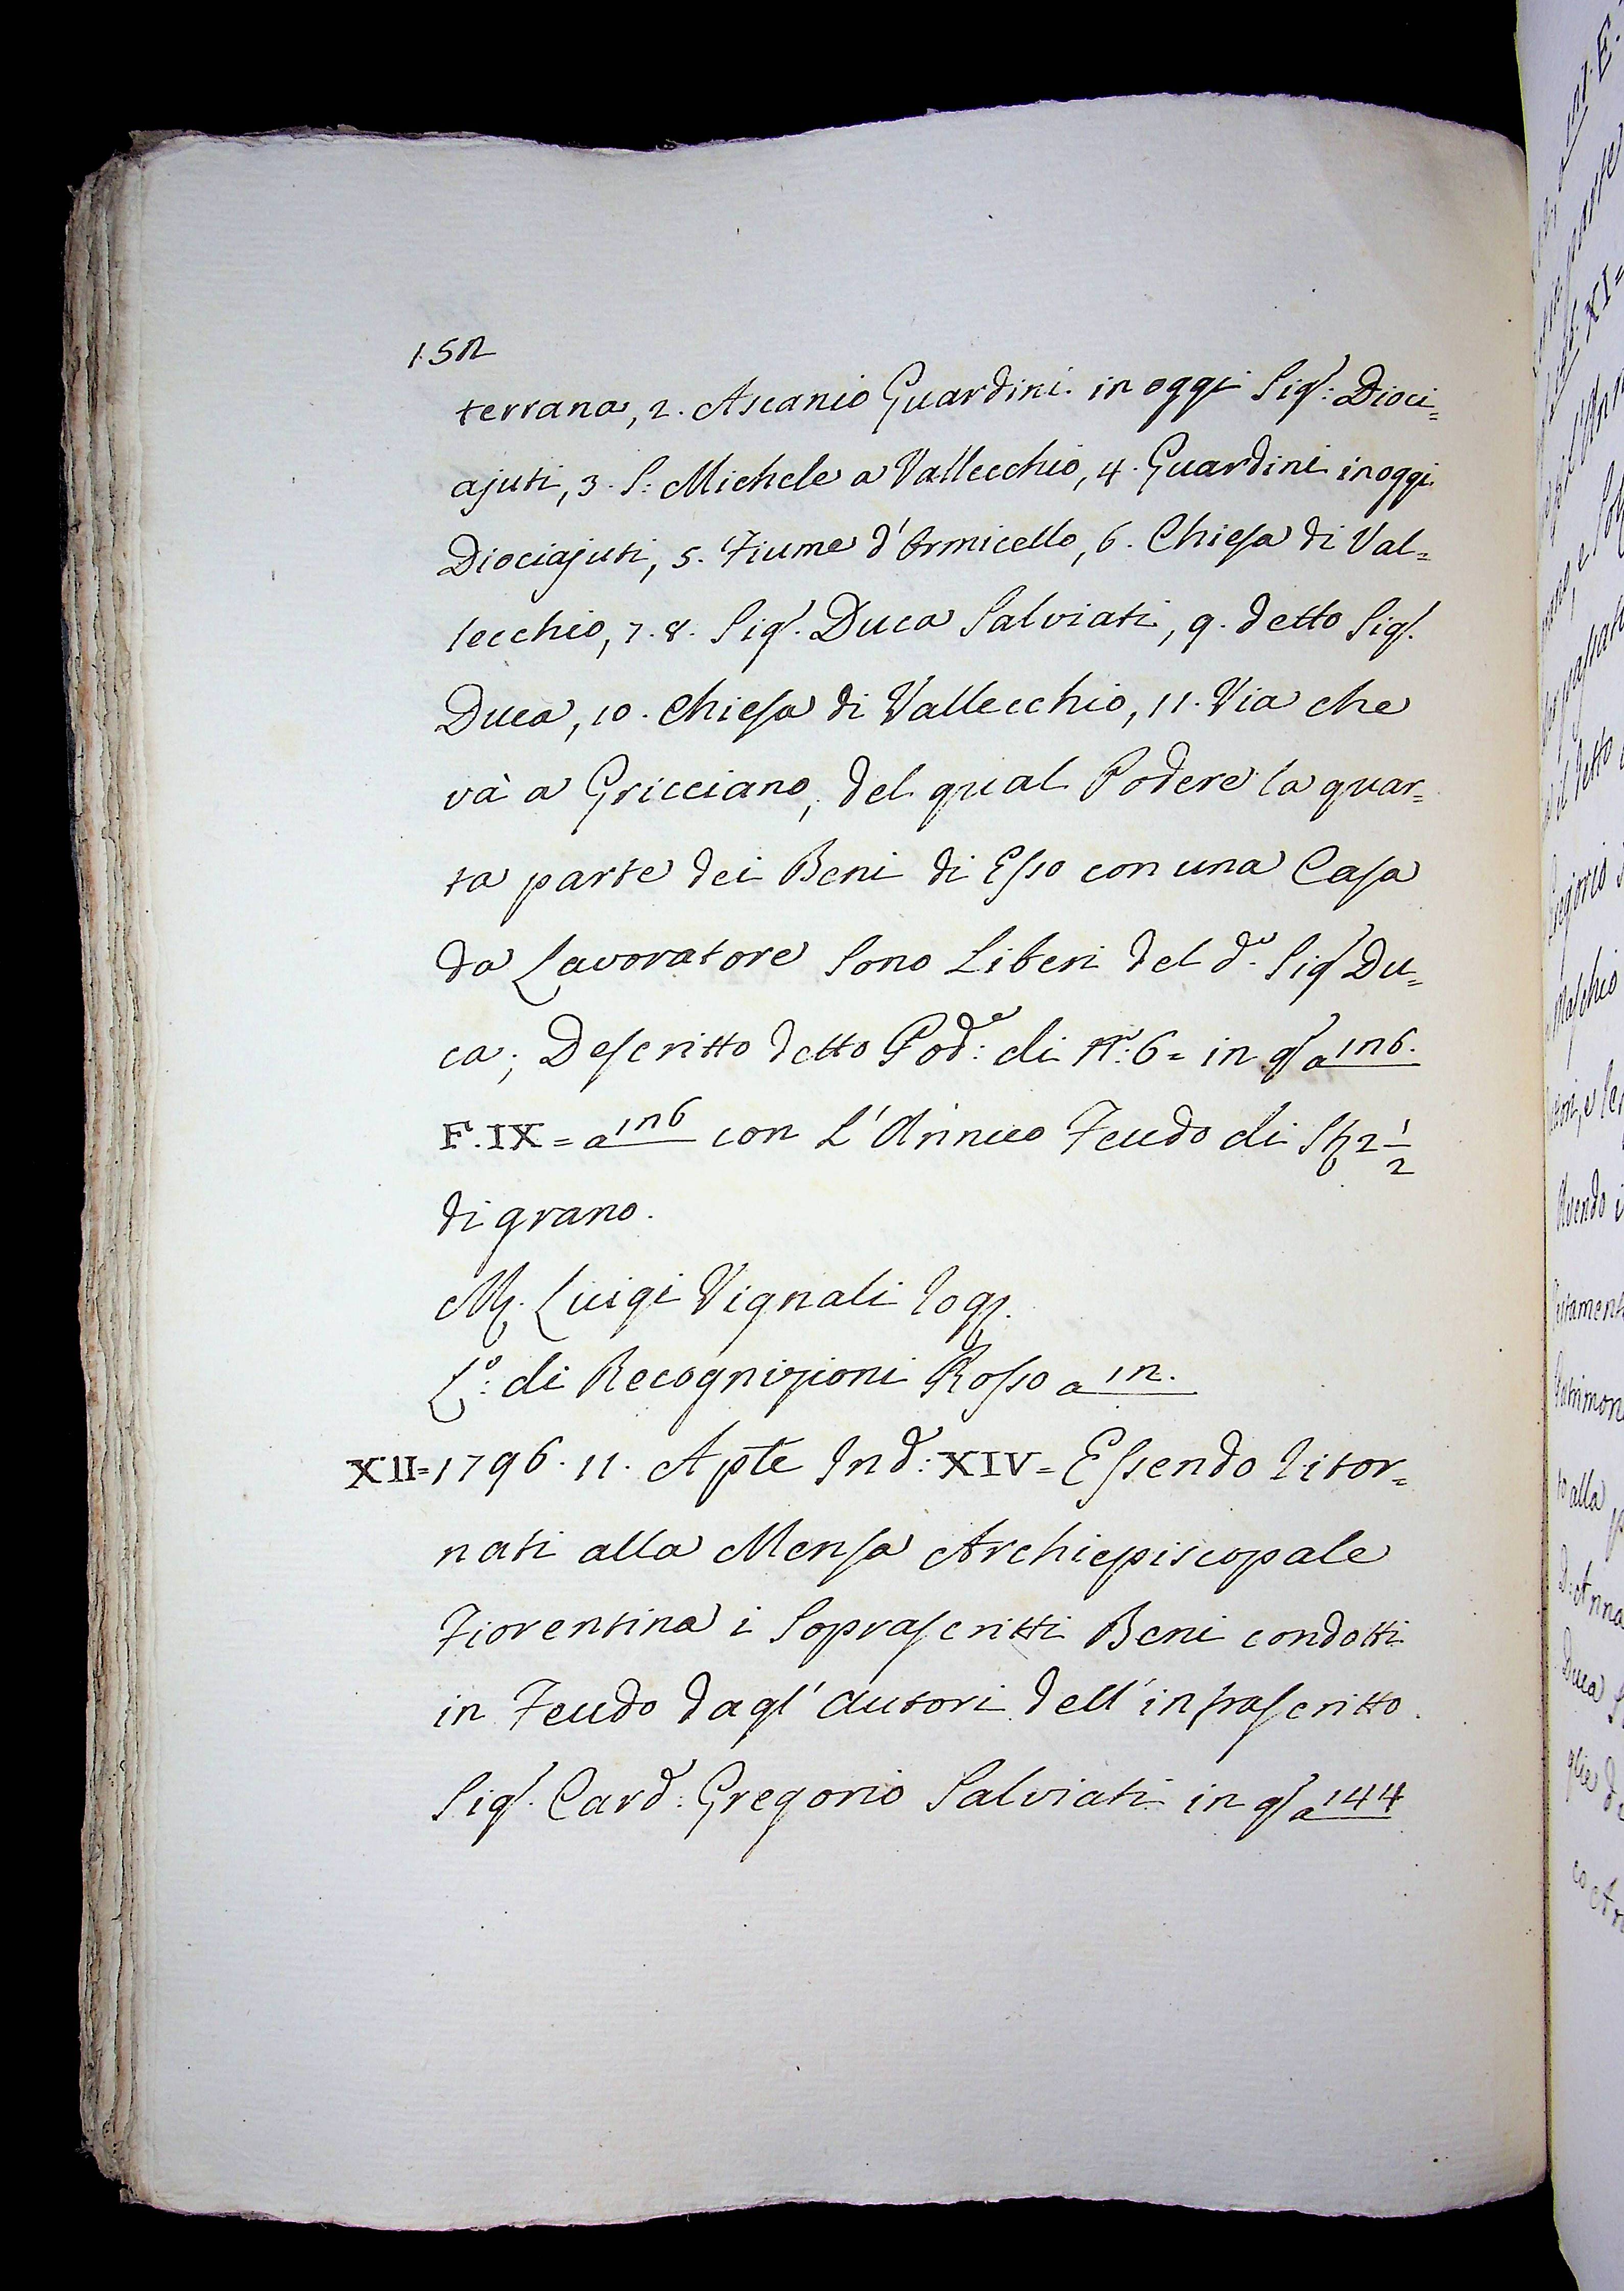 152
terrana, 2. Ascanio Guardini in oggi Sig.: Dioci=
ajuti, 3. S: Michele a Vallecchio, 4. Guardini in oggi
Diociajuti, 5. Fiume d'Ormicello, 6. Chiesa di Val=
lecchio, 7. 8. Sig. Duca Salviati, 9. detto Sig.
Duca, 10. Chiesa di Vallecchio, 11. Via che
và a Gricciano, del qual Podere la quar=
ta parte dei Beni di Esso con una Casa
da Lavoratore Sono Liberi del d.o Sig. Du=
ca; Descritto detto Pod.e: di N.o: 6= in q. a 126.
F. IX= a 126 con L'Annuo Feudo di 2 1/2
di grano.
Luigi Vignali Rog.
L.o: di Recognizioni Rosso a 12.
XII= 1796. 11. Apte Ind: XIV= Essendo Ritor=
nati alla Mensa Archiepiscopale
Fiorentina i Soprascritti Beni condotti
in Feudo dagl'Autori dell'infrascritto
Sig. Card: Gregorio Salviati in q. a 144